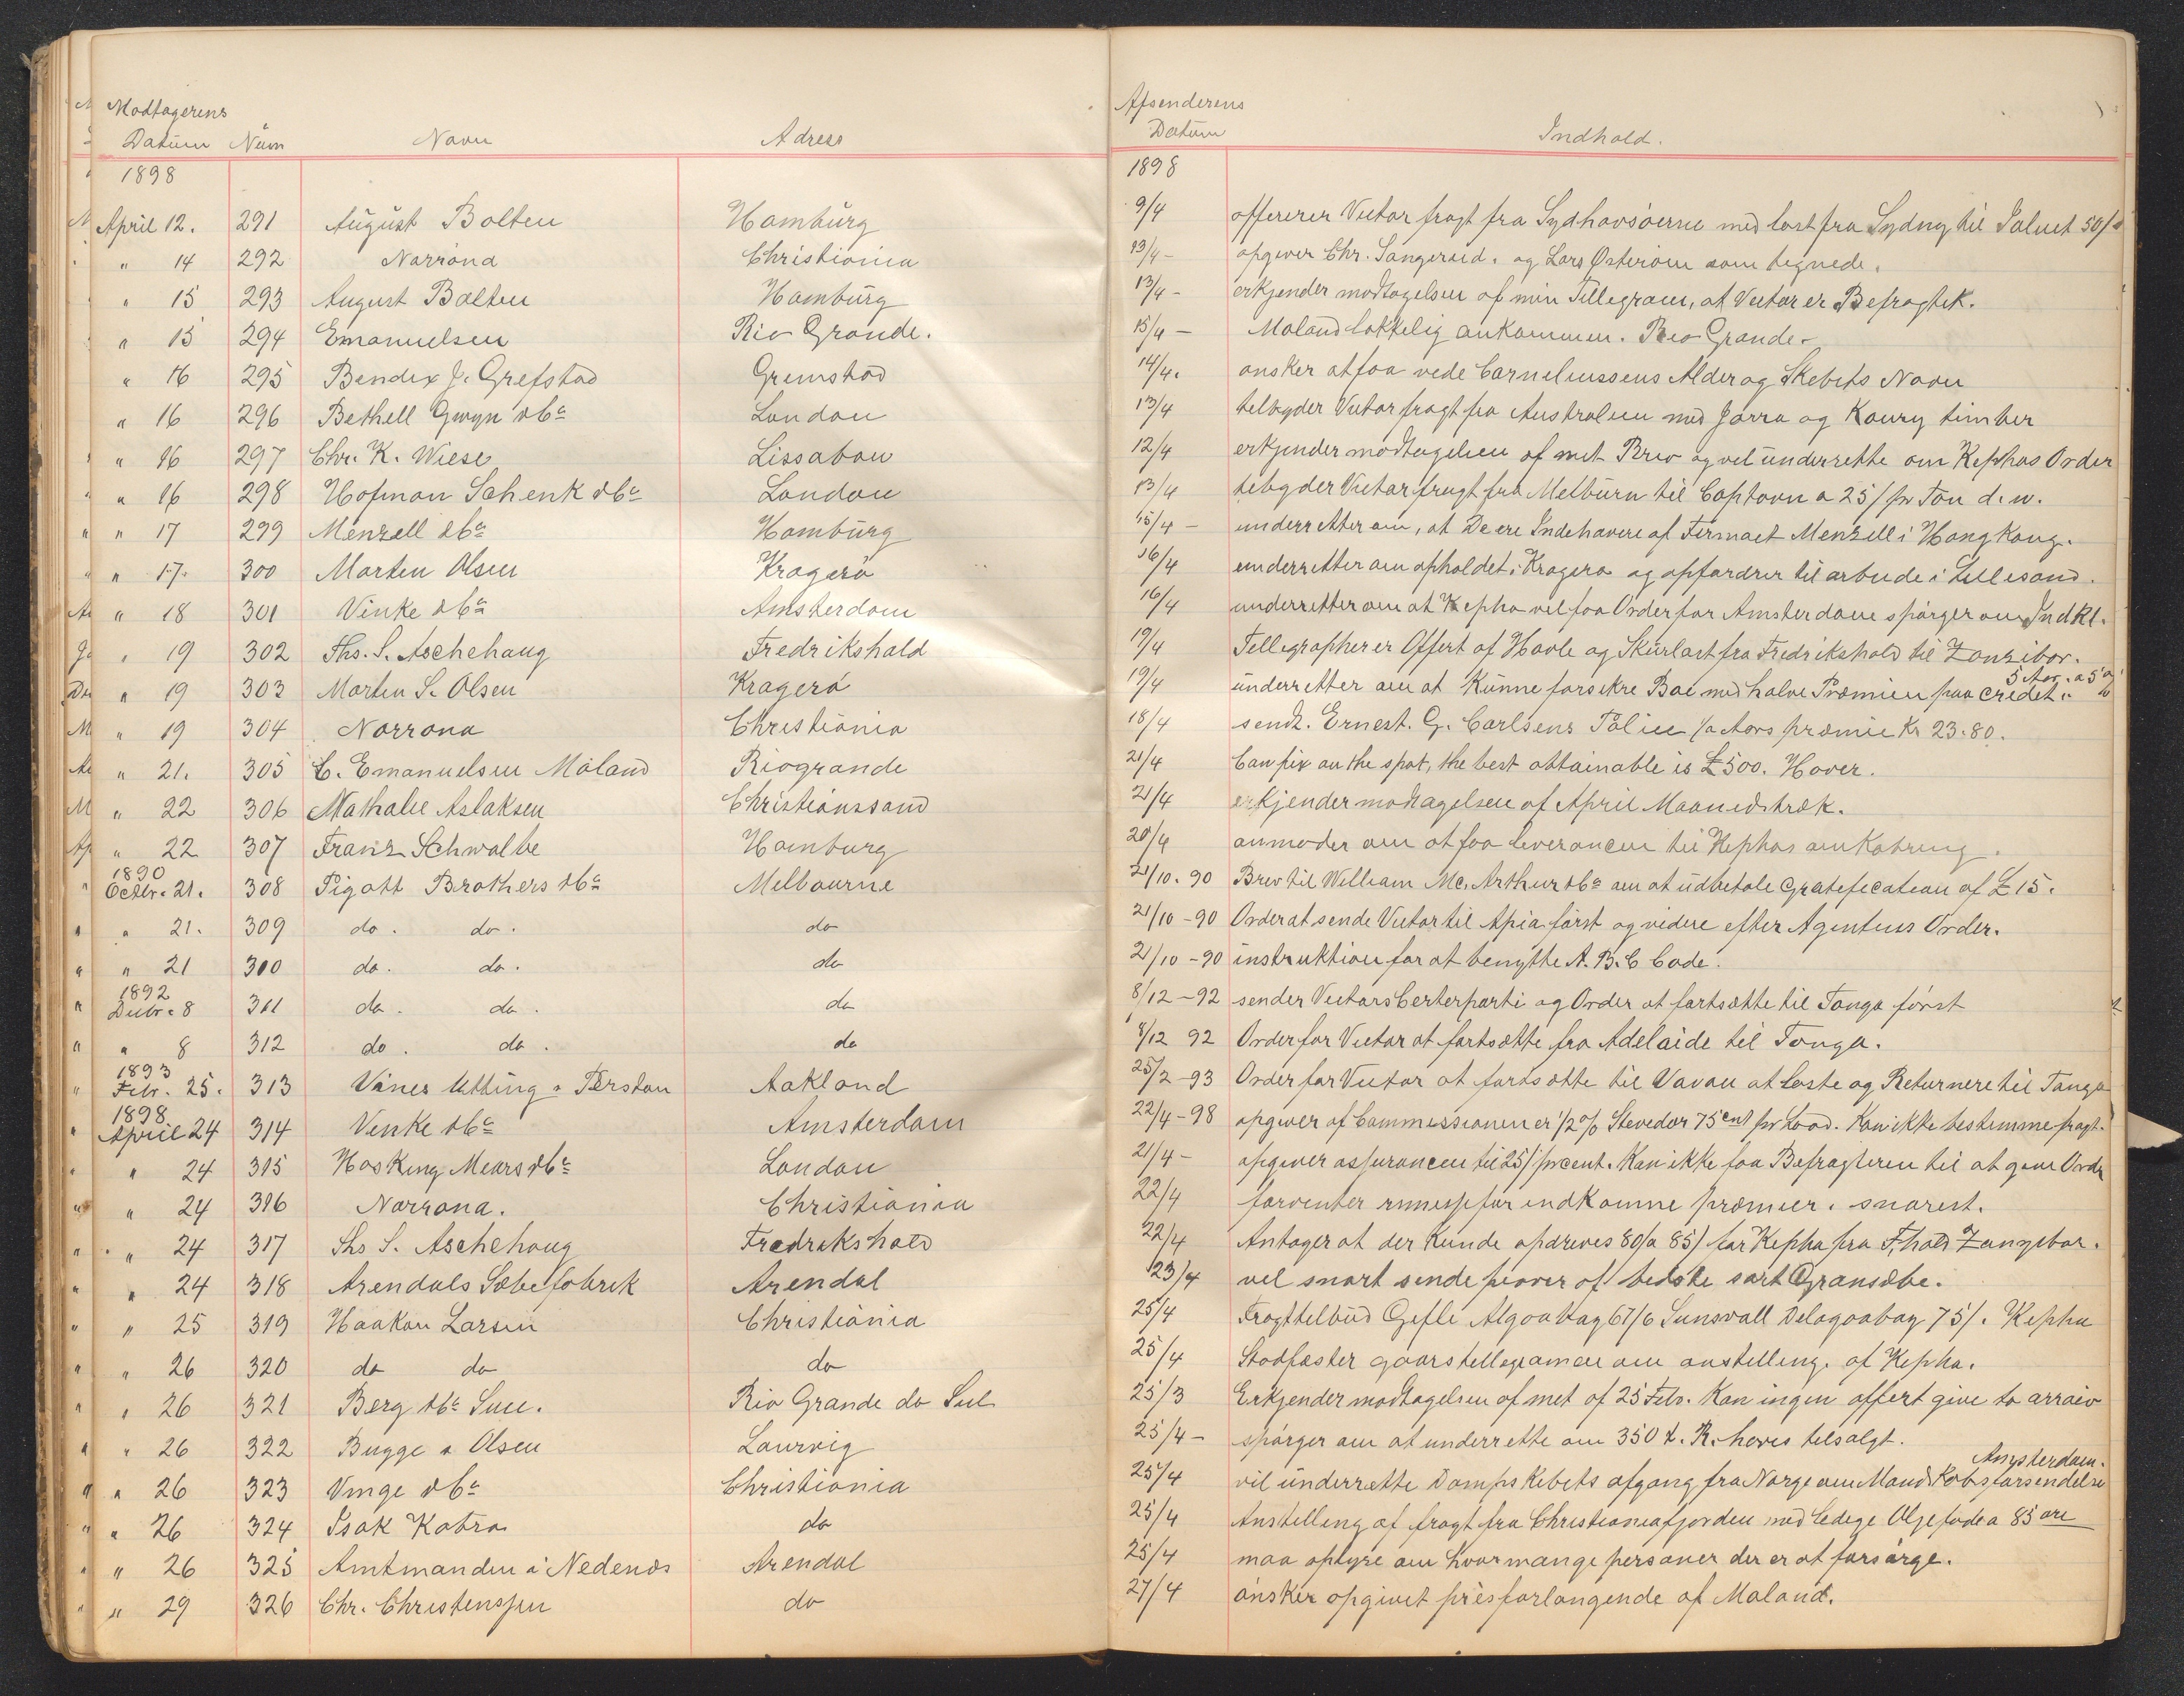 Modtagerens
Datum Num Navn Adress
1898
April 12. 291 August Bolten Hamburg
" 14 292 Norrøna Christiania
" 15 293 August Bolten Hamburg
" 15 294 Emanuelsen Rio Grande.
" 16 295 Bendix J. Grefstad Grimstad
" 16 296 Bethell Gwyn & Co London
" 16 297 Chr. K. Wiese Lissabon
" 16 298 Hofman Schenk & Co London
" 17 299 Menzell & Co Hamburg
" 17. 300 Morten Olsen Kragerö
" 18 301 Vinke & Co Amsterdam
" 19 302 Ths. S. Aschehoug Fredrikshald
" 19 303 Morten S. Olsen Kragerö
" 19 304 Norrona Christiania
" 21. 305 C. Emanuelsen Måland Riogrande
" 22 306 Nathalie Aslaksen Christianssand
" 22 307 Franz Schwalbe Hamburg
1890
Octbr. 21. 308 Pigott Brothers & Co Melbourne
" 21. 309 do. do. do
" 21 310 do. do. do
1892
Decbr. 8 311 do. do. do
" 8 312 do. do. do
1893
Febr. 25. 313 Vines Utting & Perston Aakland
1898
April 24 314 Vinke & Co Amsterdam
" 24 315 Hosking Mears & Co London
" 24 316 Norrona. Christiania
" 24 317 Ths S. Aschehoug Fredrikshald
" 24 318 Arendals Sæbefabrik Arendal
" 25 319 Haakon Larsen Christiania
" 26 320 do do do
" 26 321 Berg & Co Succ. Rio Grande do Sul
" 26 322 Bugge & Olsen Laurvig
" 26 323 Vinge & Co Christiania
" 26 324 Isak Kobro do
" 26 325 Amtmanden i Nedenæs Arendal
" 29 326 Chr. Christenssen do
Afsenderens
Datum Indhold.
1898
9/4 offererer Victor fragt fra Sydhavsöerne med last fra Sydny til Jaluet 50/-
13/4 - opgiver Chr. Sangeraid. og Lars Østeröm som tegnede.
13/4 - erkjender modtagelsen af min Tillegram, at Victor er Befragtet.
15/4 - Moland lokkelig ankommen. Rio Grande.
14/4. ønsker at faa vede Corneliussens Alder og Skebets Navn
13/4 telbyder Victor fragt fra Australien med Jarra og Koury timber
12/4 erkjender modtagelsen af mit Brev og vel underrette om Kephas Order
13/4 telbyder Victor fragt fra Melburn til Captown a 25/ pr Ton d. w.
15/4 - underretter om, at De ere Indehavere af Firmaet Menzell i Hong Kong.
16/4 underretter om opholdet i Kragerø og opfordrer til arbeide i Lillesand.
16/4 underretter om at Kepha vel faa Order for Amsterdam spörger om Indkl.
19/4 Tellegrapherer Offert af Hövle og Skurlast fra Fredrikshald til Zanzibar.
19/4 underretter om at kunne forsikre Bae med halve Præmien paa credet. 5 Aar. a 5 %
18/4 sendt. Ernest. G. Carlsens Police 1/2 Aars præmie Kr 23.80.
21/4 Can fix on the spot, the best obtainable is £ 500. Hover.
21/4 erkjender modtagelsen af April Maanedstræk.
20/4 anmoder om at faa leverancen til Kephas omkobring.
21/10. 90 Brev til William Mc. Arthur & Co om at udbetale Gratefecation af £ 15.
21/10 - 90 Order at sende Victor til Apia först og videre efter Agentens Order.
21/10 - 90 instruktion for at benytte A. B. C Code.
8/12 - 92 sender Victors Certerparti og Order at fortsætte til Tonga först
8/12 92 Order for Victor at fortsætte fra Adelaide til Tonga.
25/2 - 93 Order for Victor at fortsætte til Vavau at laste og Returnere til Tonga
22/4 - 98 opgiver af Commissionen er 1/2 % Stevedor 75 cent pr Load. Kan ikke bestemme fragt.
21/4 - opgiver assurancen til 25/ prcent. Kan ikke faa Befragteren til at give Ordr
22/4 forventer rimesse for indkomne præmier. snarest.
22/4 Antager at der kunde opdrives 80/ a 85/ for Kepha fra F,hald Zangibar.
23/4 vel snart sende prøver af bedste sort Grønsæbe.
25/4 Fragttelbud Gefle Algoabay 67/6 Sunsvall Delagoabay 75/. Kepha
25/4 Stadfæster gaars tellegramen om anstelling. af Kepha.
25/3 Erkjender modtagelsen af met af 25 Feb. Kan ingen offert give to arraiv
25/4 - spörger om at underrette om 350 t. R. haves telsalgt.
Amsterdam.
25/4 vil underrette Dampskibets afgang fra Norge om Mandskabsforsendelse
25/4 Anstelling af fragt fra Christianiafjorden med ledege Oljefade a 85 øre
25/4 maa oplyse om hvor mange personer der er at forsörge.
27/4 önsker opgivet prisforlangende af Moland.